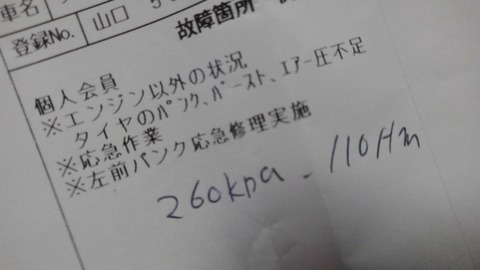 車名
登録No. 山口 5
故障箇所
個人会員
※エンジン以外の状況
タイヤのパンク、バースト、エアー圧不足
※応急作業
※左前パンク応急修理実施
260kpa - 110Hm